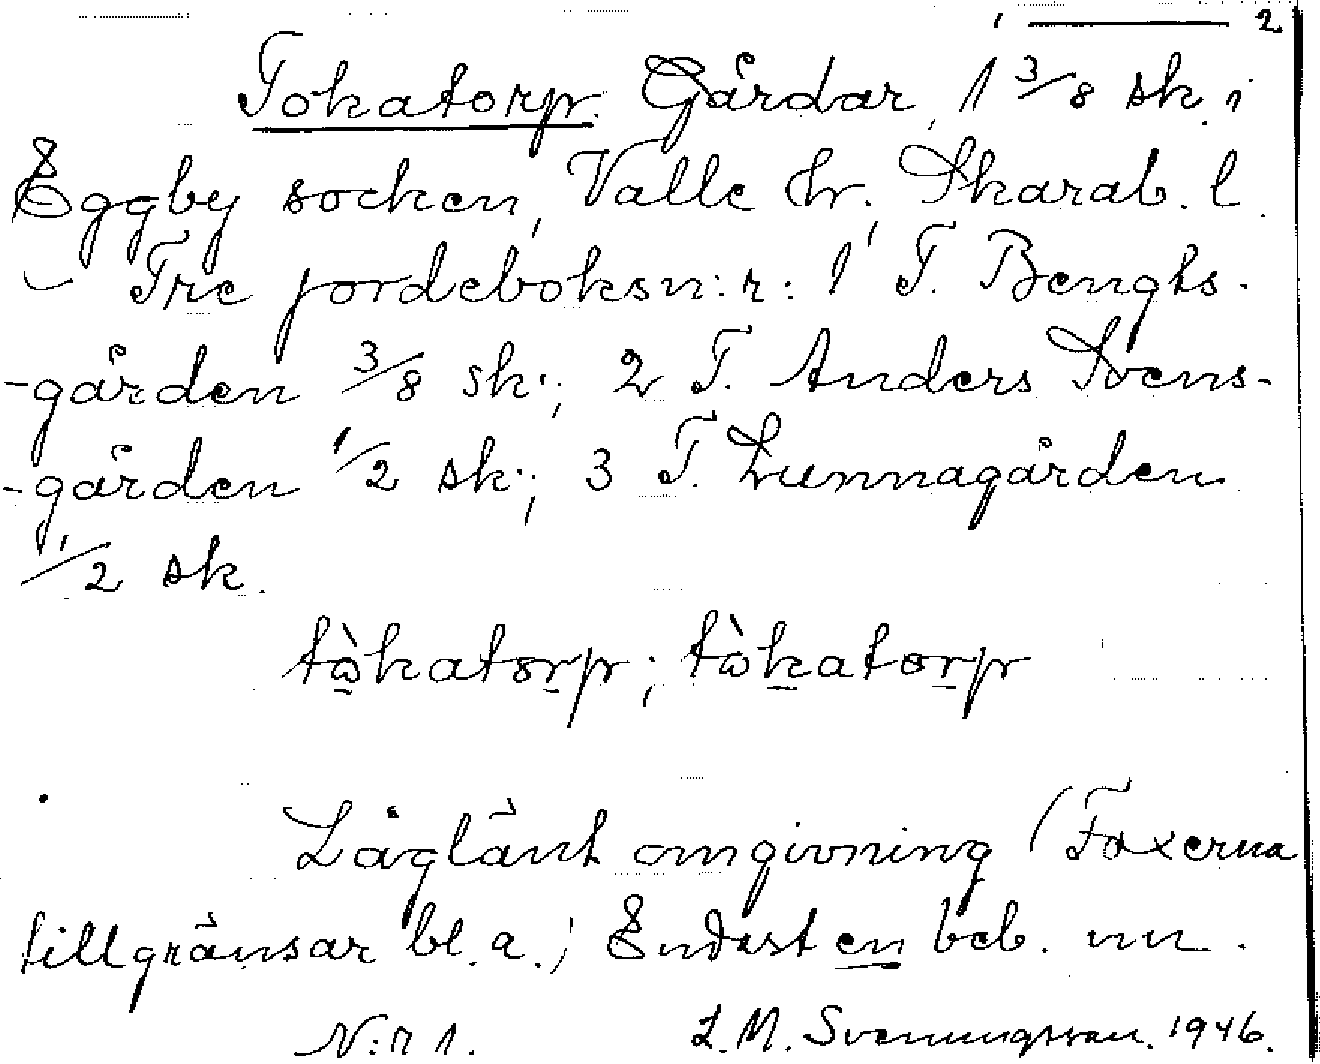 1 ——— 2
Tokatorp. Gårdar, 1 3/8 sk. i
Eggby socken, Valle hr. Skarab. l.
Tre jordeboksn:r: 1 T. Bengts-
-gården 3/8 sk.; 2 T. Anders Svens-
-gården 1/2 sk.; 3 T. Lunnagården
1/2 sk.
tòkatorp; tòkatorp
Låglänt omgivning (Faxerna
tillgränsar bl. a.; Endast en beb. nu.
N:r 1. L. M. Svenungsson. 1946.